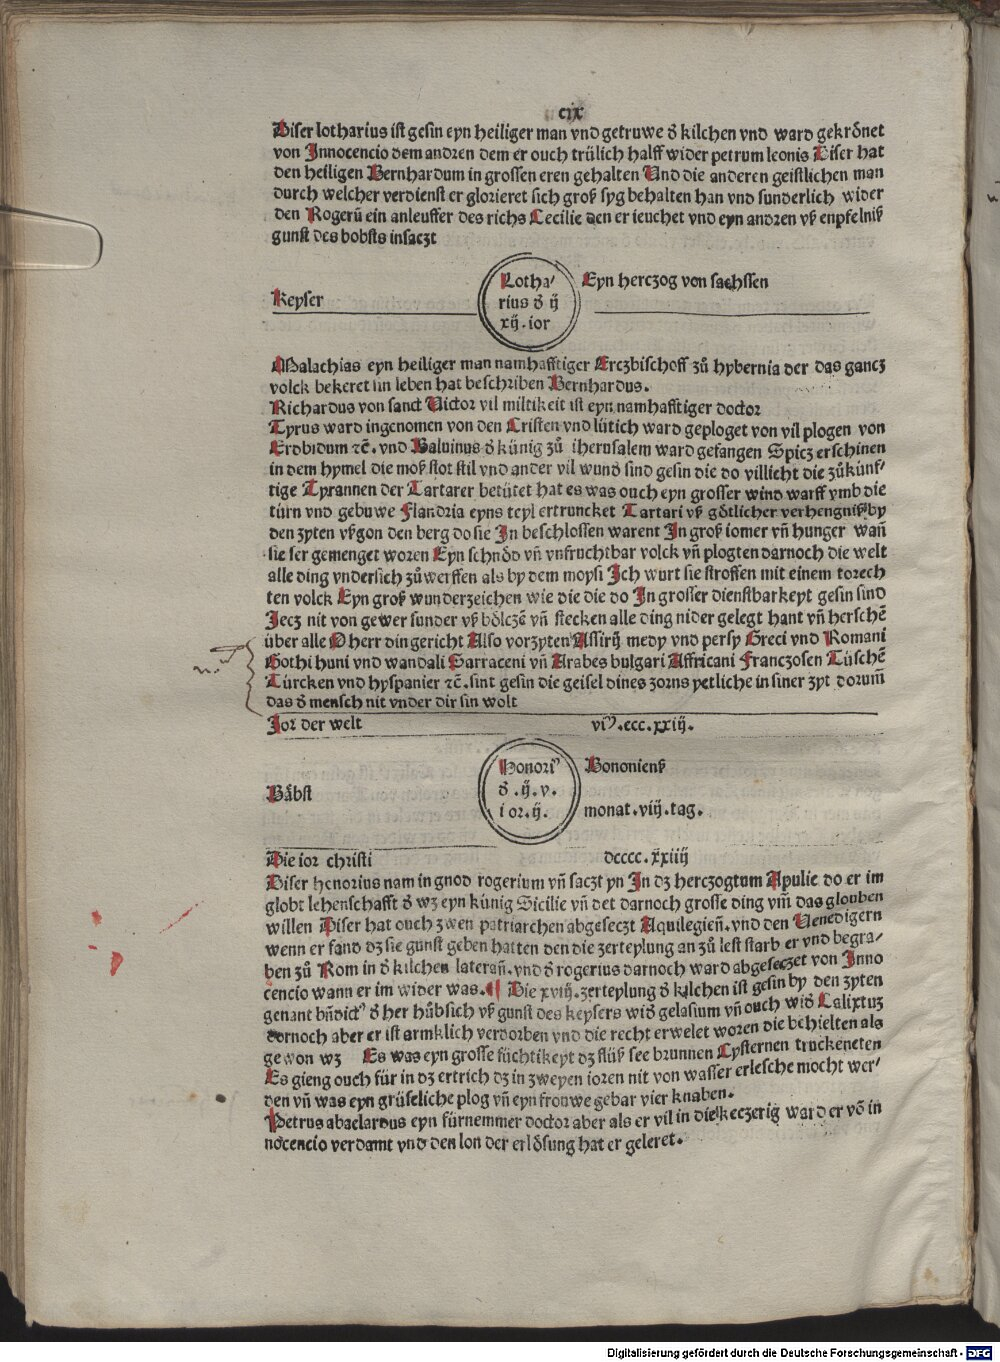 cix
Diser lotharius ist gesin eyn heiliger man vnd getruwe d̕ kilchen vnd ward gekrônet
von Innocencio dem andren dem er ouch trülich halff wider petrum leonis Diser hat
den heiligen Bernhardum in grossen eren gehalten Vnd die anderen geistlichen man
durch welcher verdienst er glorieret sich groß syg behalten han vnd sunderlich wider
den Rogerū ein anleuffer des richs Cecilie den er ieuchet vnd eyn andren vß enpfelniß
gunst des bobsts insaczt
Keyser
Lotha⸗
rius d̕ ij
xij. ior
Eyn herczog von sachssen
Malachias eyn heiliger man namhafftiger Erczbischoff zů hybernia der das gancz
volck bekeret sin leben hat beschriben Bernhardus.
Richardus von sanct Victor vil miltikeit ist eyn namhafftiger doctor
Tyrus ward ingenomen von den Cristen vnd lütich ward geploget von vil plogen von
Erdbidum ⁊c̄. vnd Balvinus d̕ künig zů iherusalem ward gefangen Spicz erschinen
in dem hymel die moß stot stil vnd ander vil wund̕ sind gesin die do villicht die zůkünf⸗
tige Tyrannen der Tartarer betütet hat es was ouch eyn grosser wind warff vmb die
türn vnd gebuwe Flandria eyns teyl ertruncket Tartari vß gôtlicher verhengniß by
den zyten vßgon den berg do sie In beschlossen warent In groß iomer vn̄ hunger wan̄
sie ser gemenget woren Eyn schnôd vn̄ vnfruchtbar volck vn̄ plogten darnoch die welt
alle ding vndersich zůwerffen als by dem moysi Ich wurt sie stroffen mit einem torech
ten volck Eyn groß wunderzeichen wie die die do In grosser dienstbarkeyt gesin sind
Jecz nit von gewer sunder vß bôlczē vn̄ stecken alle ding nider gelegt hant vn̄ herschē
über alle O herr din gericht Also vorzyten Assirij medy vnd persy Greci vnd Romani
Gothi huni vnd wandali Sarraceni vn̄ Arabes bulgari Affricani Franczosen Tüschē
Türcken vnd hyspanier ⁊c̄. sint gesin die geisel dines zorns yetliche in siner zyt dorum̄
das d̕ mensch nit vnder dir sin wolt
Jor der welt vi⁹. ccc. xxiij.
Bâbst
Honori⁹
d̕ .ij. v.
ior. ij.
Bononienß
monat. viij. tag.
Die ior christi dcccc. xxiiij
Diser honorius nam in gnod rogerium vn̄ saczt yn In dz herczogtum Apulie do er im
globt lehenschafft d̕ wz eyn künig Sicilie vn̄ det darnoch grosse ding vm̄ das glouben
willen Diser hat ouch zwen patriarchen abgeseczt Aquilegien̄. vnd den Venedigern
wenn er fand dz sie gunst geben hatten den die zerteylung an zů lest starb er vnd begra⸗
ben zů Rom in d̕ kilchen lateran̄. vnd d̕ rogerius darnoch ward abgeseczet von Inno
cencio wann er im wider was. ¶ Die xviij. zerteylung d̕ kilchen ist gesin by den zyten
genant bn̄dict⁹ d̕ her hůbsich vß gunst des keysers wid̕ gelasium vn̄ ouch wid̕ Calixtuz
dornoch aber er ist armklich verdorben vnd die recht erwelet woren die behielten als
gewon wz Es was eyn grosse füchtikeyt dz flüß see brunnen Cysternen truckeneten
Es gieng ouch für in dz ertrich dz in zweyen ioren nit von wasser erlesche mocht wer⸗
den vn̄ was eyn grüseliche plog vn̄ eyn frouwe gebar vier knaben.
Petrus abaelardus eyn fürnemmer doctor aber als er vil in die keczerig ward er vō in
nocencio verdamt vnd den lon der erlôsung hat er geleret.
Digitalisierung gefördert durch die Deutsche Forschungsgemeinschaft - DFG